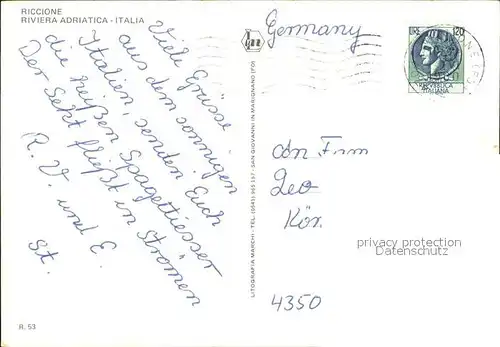 RICCIONE
RIVIERA ADRIATICA - ITALIA
Viele Grüsse
aus dem sonnigen
Italien, senden Euch
die heißen Spagettiesser
Der Sekt fließt in Strömen
R. V. und E.
St.
R. 53
LITOGRAFIA MARCHI - TEL. (0541) 955.157 - SAN GIOVANNI IN MARIGNANO (FO)
Germany
LIRE 120
REPUBBLICA
ITALIANA
An Firm
Leo
Kör
privacy protection
Datenschutz
4350